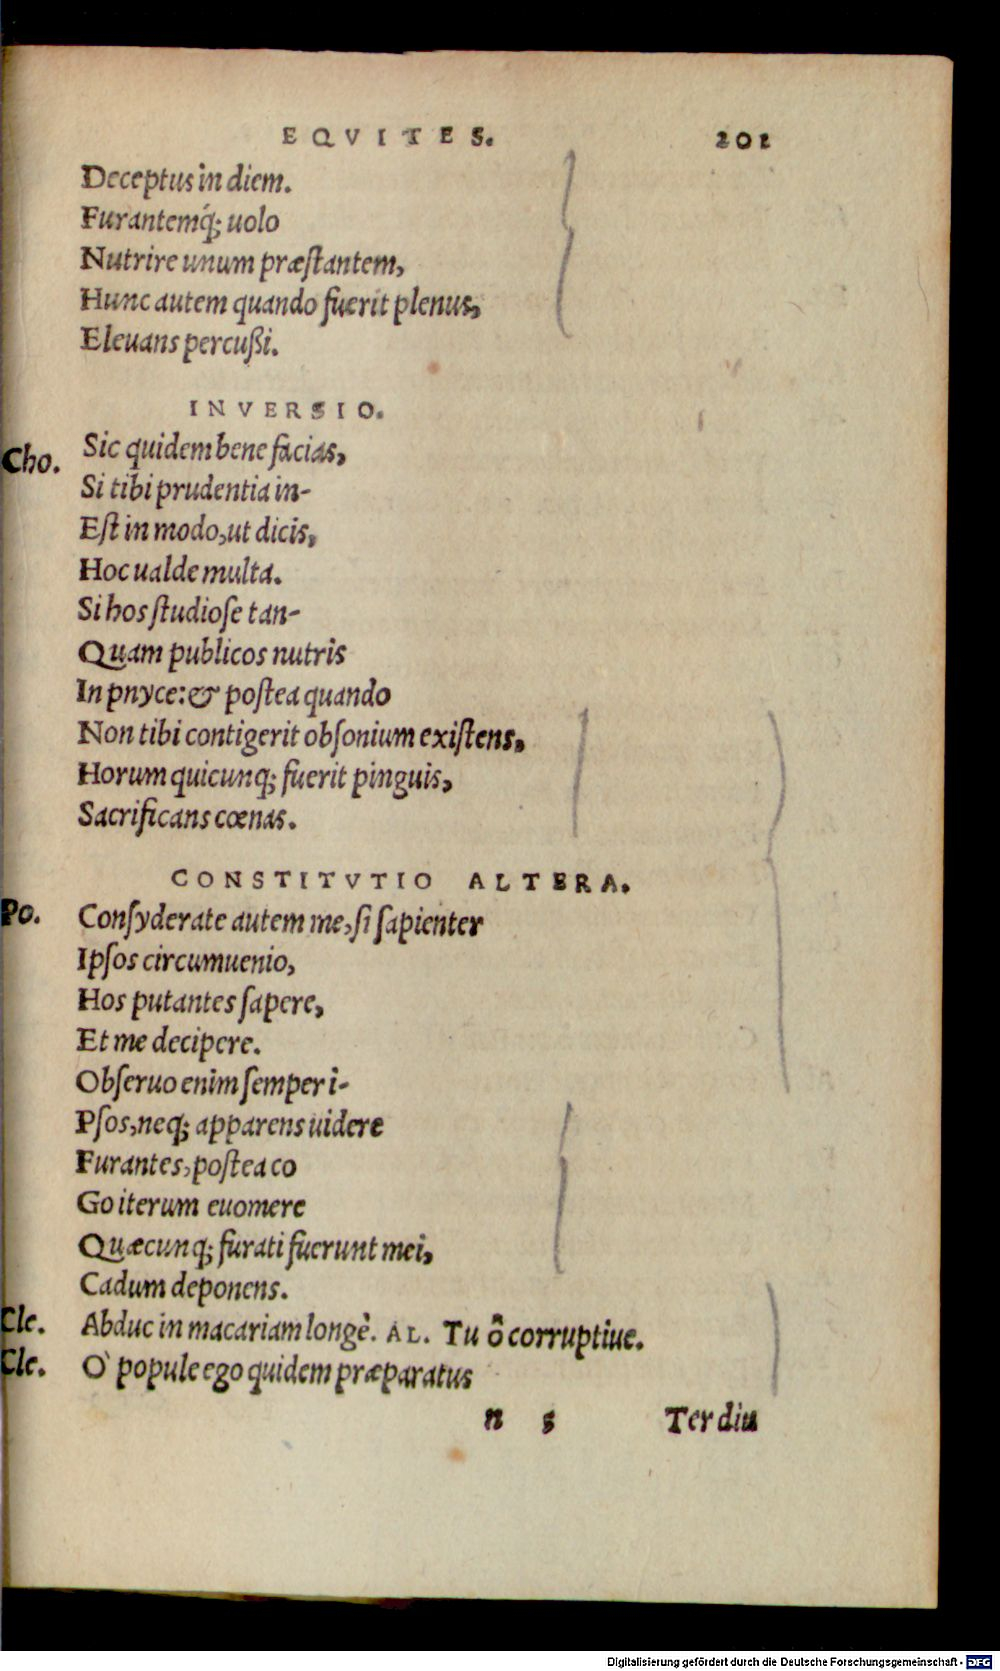 EQVITES. 201
Deceptus in diem.
Furantemq́; uolo
Nutrire unum præstantem,
Hunc autem quando fuerit plenus,
Eleuans percußi.
INVERSIO.
Cho. Sic quidem bene facias,
Si tibi prudentia in-
Est in modo, ut dicis,
Hoc ualde multa.
Si hos studiose tan-
Quam publicos nutris
In pnyce: & postea quando
Non tibi contigerit obsonium existens,
Horum quicunq; fuerit pinguis,
Sacrificans cœnas.
CONSTITVTIO ALTERA.
Po. Consyderate autem me, si sapienter
Ipsos circumuenio,
Hos putantes sapere,
Et me decipere.
Obseruo enim semper i-
Psos, neq; apparens uidere
Furantes, postea co
Go iterum euomere
Quæcunq; furati fuerunt mei,
Cadum deponens.
Cle. Abduc in macariam longè. AL. Tu ô corruptiue.
Cle. O` popule ego quidem præparatus
n 5 Ter diu
Digitalisierung gefördert durch die Deutsche Forschungsgemeinschaft - DFG